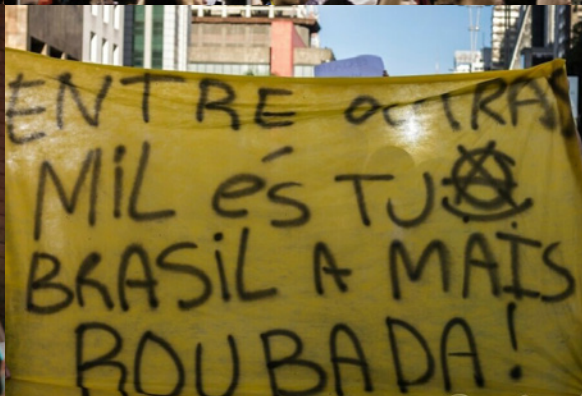 ENTRE OUTRAS
MIL és TU
BRASiL A MAIS
ROUBADA!